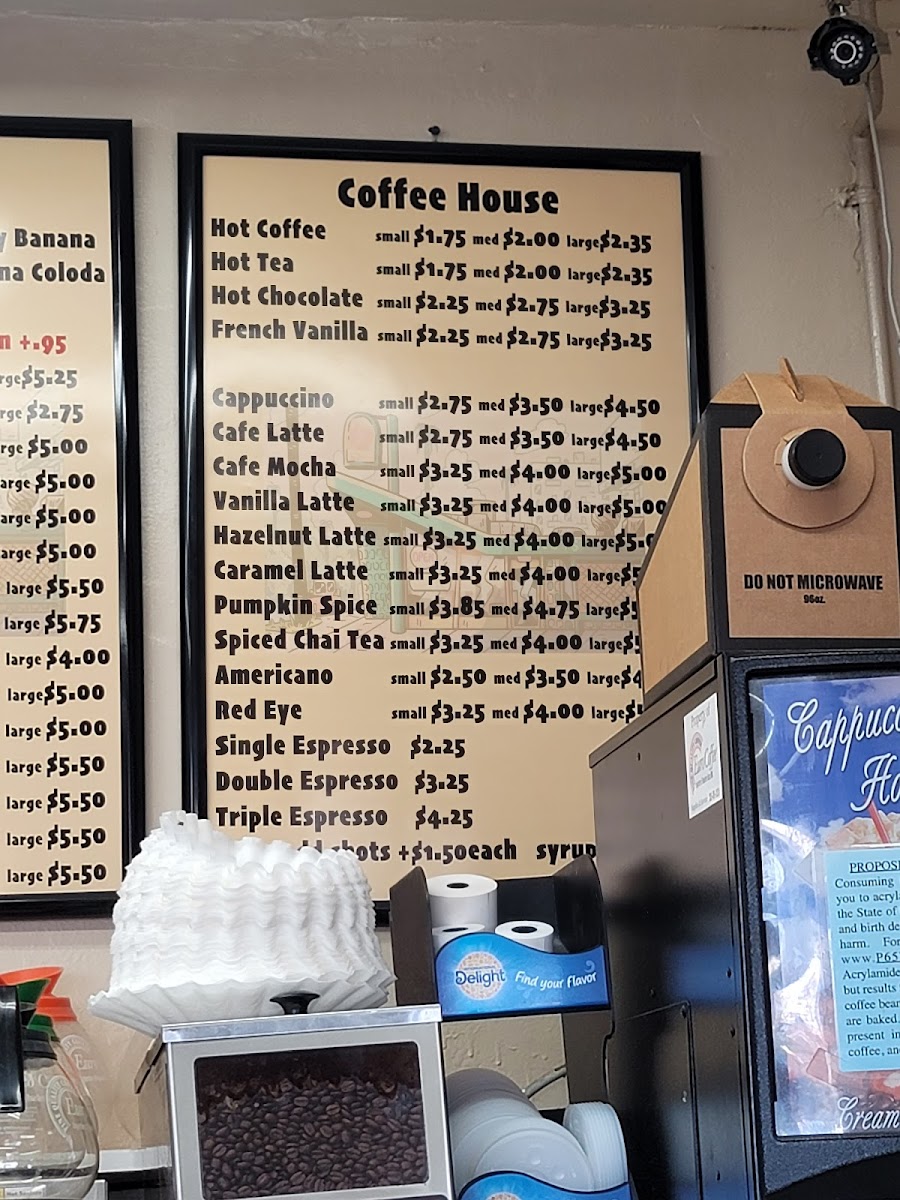 Banana
Coloda
+.95
$5.25
$2.75
$5.00
$5.00
$5.00
$5.00
large $5.50
large $5.75
large $4.00
large $5.00
large $5.00
large $5.50
large $5.50
large $5.50
large $5.50
Coffee House
Hot Coffee small $1.75 med $2.00 large $2.35
Hot Tea small $1.75 med $2.00 large $2.35
Hot Chocolate small $2.25 med $2.75 large $3.25
French Vanilla small $2.25 med $2.75 large $3.25
Cappuccino small $2.75 med $3.50 large $4.50
Cafe Latte small $2.75 med $3.50 large $4.50
Cafe Mocha small $3.25 med $4.00 large $5.00
Vanilla Latte small $3.25 med $4.00 large $5.00
Hazelnut Latte small $3.25 med $4.00 large
Caramel Latte small $3.25 med $4.00 large
Pumpkin Spice small $3.85 med $4.75 large
Spiced Chai Tea small $3.25 med $4.00 large
Americano small $2.50 med $3.50 large
Red Eye small $3.25 med $4.00 large
Single Espresso $2.25
Double Espresso $3.25
Triple Espresso $4.25
shots +$1.50each syrup
DO NOT MICROWAVE
96oz.
Property of
Delight Find your flavor
Consuming
you to
the State of
and birth
harm. For
Acrylamide
but results
coffee
are baked.
present in
coffee,